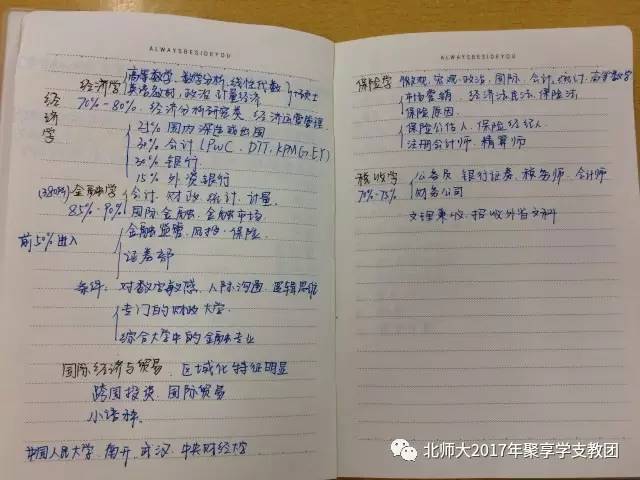 ALWAYSBESIDEYOU
经济学
经济学 高等数学、数学分析、线性代数
政治 计量经济
70%-80%. 经济分析研究类 经济运营管理
国内深造或出国
30% 会计 (PWC. DTT. KPMG. EY)
30% 银行
15% 外资银行
金融学 会计. 财政. 统计. 计量.
85%-90% 国际金融. 金融市场
前50%进入
金融监管. 风控. 保险.
证券部
条件: 对数字敏感. 人际沟通. 逻辑思维
专门的财政大学.
综合大学中的金融专业
国际经济与贸易. 区域化特征明显
跨国投资. 国际贸易
小语种.
中国人民大学. 南开. 武汉. 中央财经大学
ALWAYSBESIDEYOU
保险学 微观. 宏观. 政治. 国际. 会计. 统计. 高等数学
市场营销. 经济法民法. 保险法
保险原因
保险公估人. 保险经纪人
注册会计师. 精算师
税收学 公务员 银行证券. 税务师. 会计师
70%-75% 财务公司
文理兼收. 招收外省文科
北师大2017年聚享学支教团